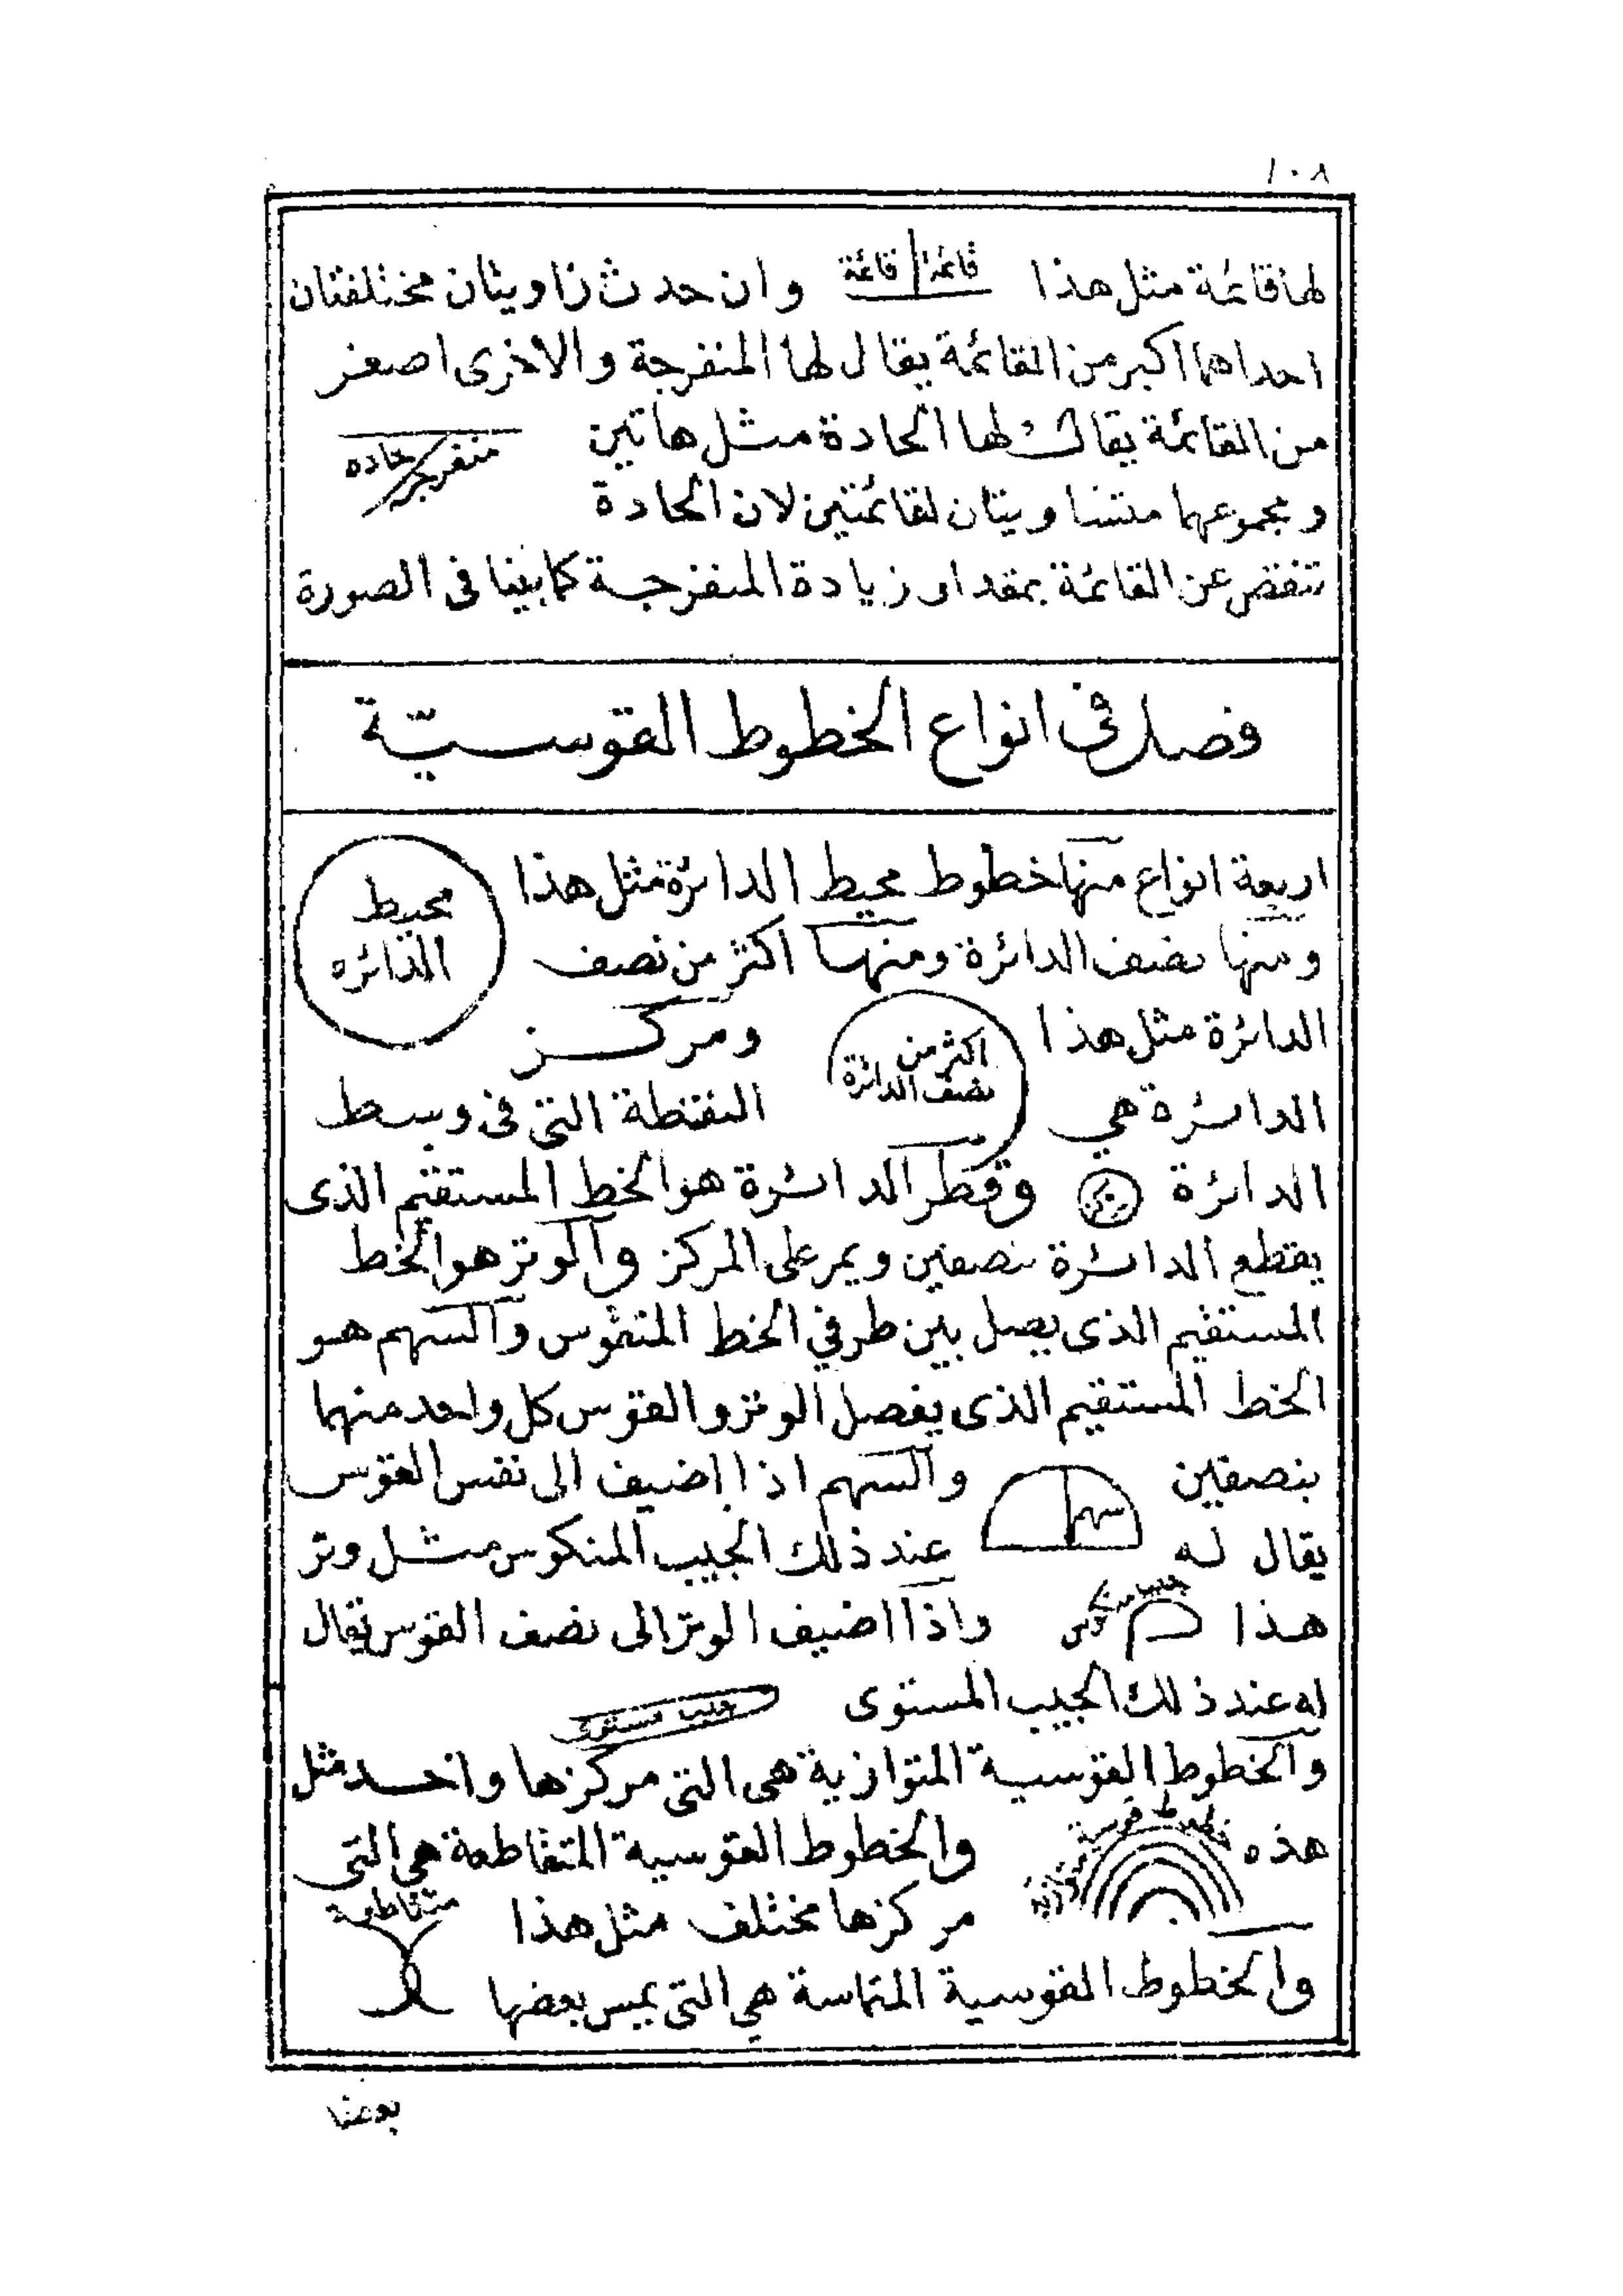 ١٠٨
لها قائمة مثل هذا قائمة قائمة وان حدث زاويتان مختلفتان
احداهما اكبر من القائمة يقال لها المنفرجة والاخرى اصغر
من القائمة يقال لها الحادة مثل هاتين منفرجة حاده
ومجموعهما متساويتان لقائمتين لان الحادة
تنقص عن القائمة بمقدار زيادة المنفرجة كما بينا فى الصورة
فصل فى انواع الخطوط القوسيّة
اربعة انواع منها خطوط محيط الدائرة مثل هذا
محيط
الدائره
ومنها نصف الدائرة ومنها اكثر من نصف
الدائرة مثل هذا
اكثر من
نصف الدائرة
ومركز
الدائرة هي النقطة التى فى وسط
الدائرة مركز وقطر الدائرة هو الخط المستقيم الذى
يقطع الدائرة بنصفين ويمر على المركز والوتر هو الخط
المستقيم الذى يصل بين طرفي الخط المتقوس والسهم هو
الخط المستقيم الذى يفصل الوتر والقوس كل واحد منهما
بنصفين سهم والسهم اذا اضيف الى نفس القوس
يقال له عند ذلك الجيب المنكوس مثل وتر
هذا جيب منكوس واذا اضيف الوتر الى نصف القوس يقال
له عند ذلك الجيب المستوى جيب مستوى
والخطوط القوسية المتوازية هى التى مركزها واحد مثل
هذه خطوط قوسية متوازية والخطوط القوسية المتقاطعة هي التى
مركزها مختلف مثل هذا متقاطعة
والخطوط القوسية المتماسة هي التى يمس بعضها
بعضا